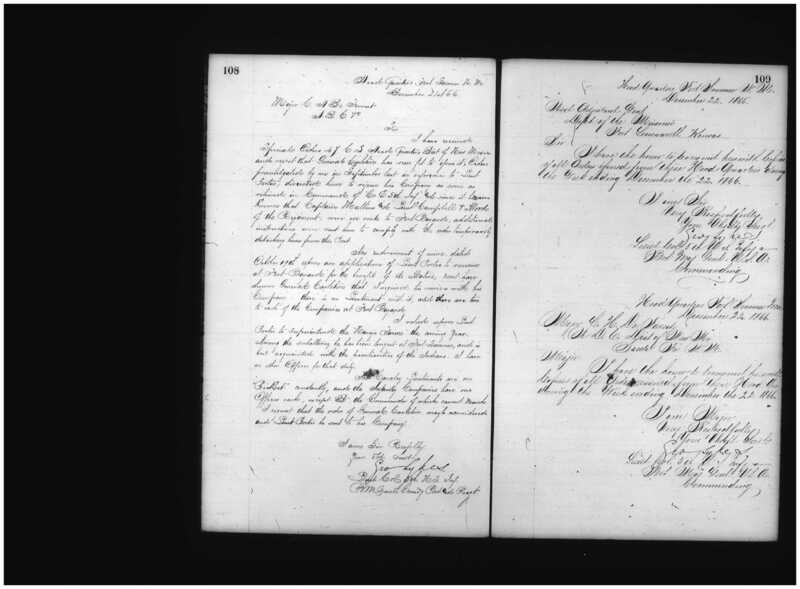 108
Head Quarters Fort Sumner N. M.
December 21st 66
Major C.
A. A. G.
I have received
Special Order No
and regret that General Carleton has seen fit to
by me in September last in reference to Lieut
Porter, directed him to rejoin his Company as soon as
relieved in Command of Co. E. 5th Inf. and since it
known that Captain Mullins and Lieuts Campbell &
of the Regiment were en route to Fort Bascom, additional
instructions were sent him to comply with the order temporarily
detaching him from this Post.
An endorsement of mine dated
October upon an application of Lieut Porter to remain
at Fort Bascom for the benefit of his must have
shown General Carleton that I required his services with his
Company, there is no Lieutenant with it, and there are two
to each of the Companies at Fort Bascom.
I relied upon Lieut
Porter to superintend the Farms the coming year.
Among the subalterns he has been longest at Fort Sumner, and is
best acquainted with the peculiarities of the Indians. I have
no other Officer for that duty.
Cavalry Lieutenants are on
constantly, and the Infantry Companies have one
Officer each, except "D" the Command of which cannot
I request that the order of General Carleton may be reconsidered
and Lieut Porter be sent to his Company.
I am Sir Respectfully
Your Obt Servt
Geo Sykes
Lieut Col. 5th U.S. Inf.
Bvt M Genl Comdg
109
Head Quarters Fort Sumner N. M.
December 22, 1866.
Asst Adjutant Genl
Dept of the Missouri
Fort Leavenworth Kansas
Sir
I have the honor to transmit herewith Copies
of all Orders issued from these Head Quarters during
the Week ending December the 22, 1866.
I am Sir
Very Respectfully
Your Obdt Servt
Geo Sykes
Lieut Col. 5th U.S. Infy
Bvt Maj Genl U.S.A.
Commanding
Head Quarters Fort Sumner
December 22, 1866.
Major C. H. De Forrest
A. A. A. G. Dist of New Mex
Santa Fe N. M.
Major
I have the honor to transmit herewith
Copies of all Orders issued from these Head
during the Week ending December the 22, 1866.
I am Major
Very Respectfully
Your Obdt Servt
Geo Sykes
Lieut Col. 5th U.S. Infy
Bvt Maj Genl U.S.A.
Commanding